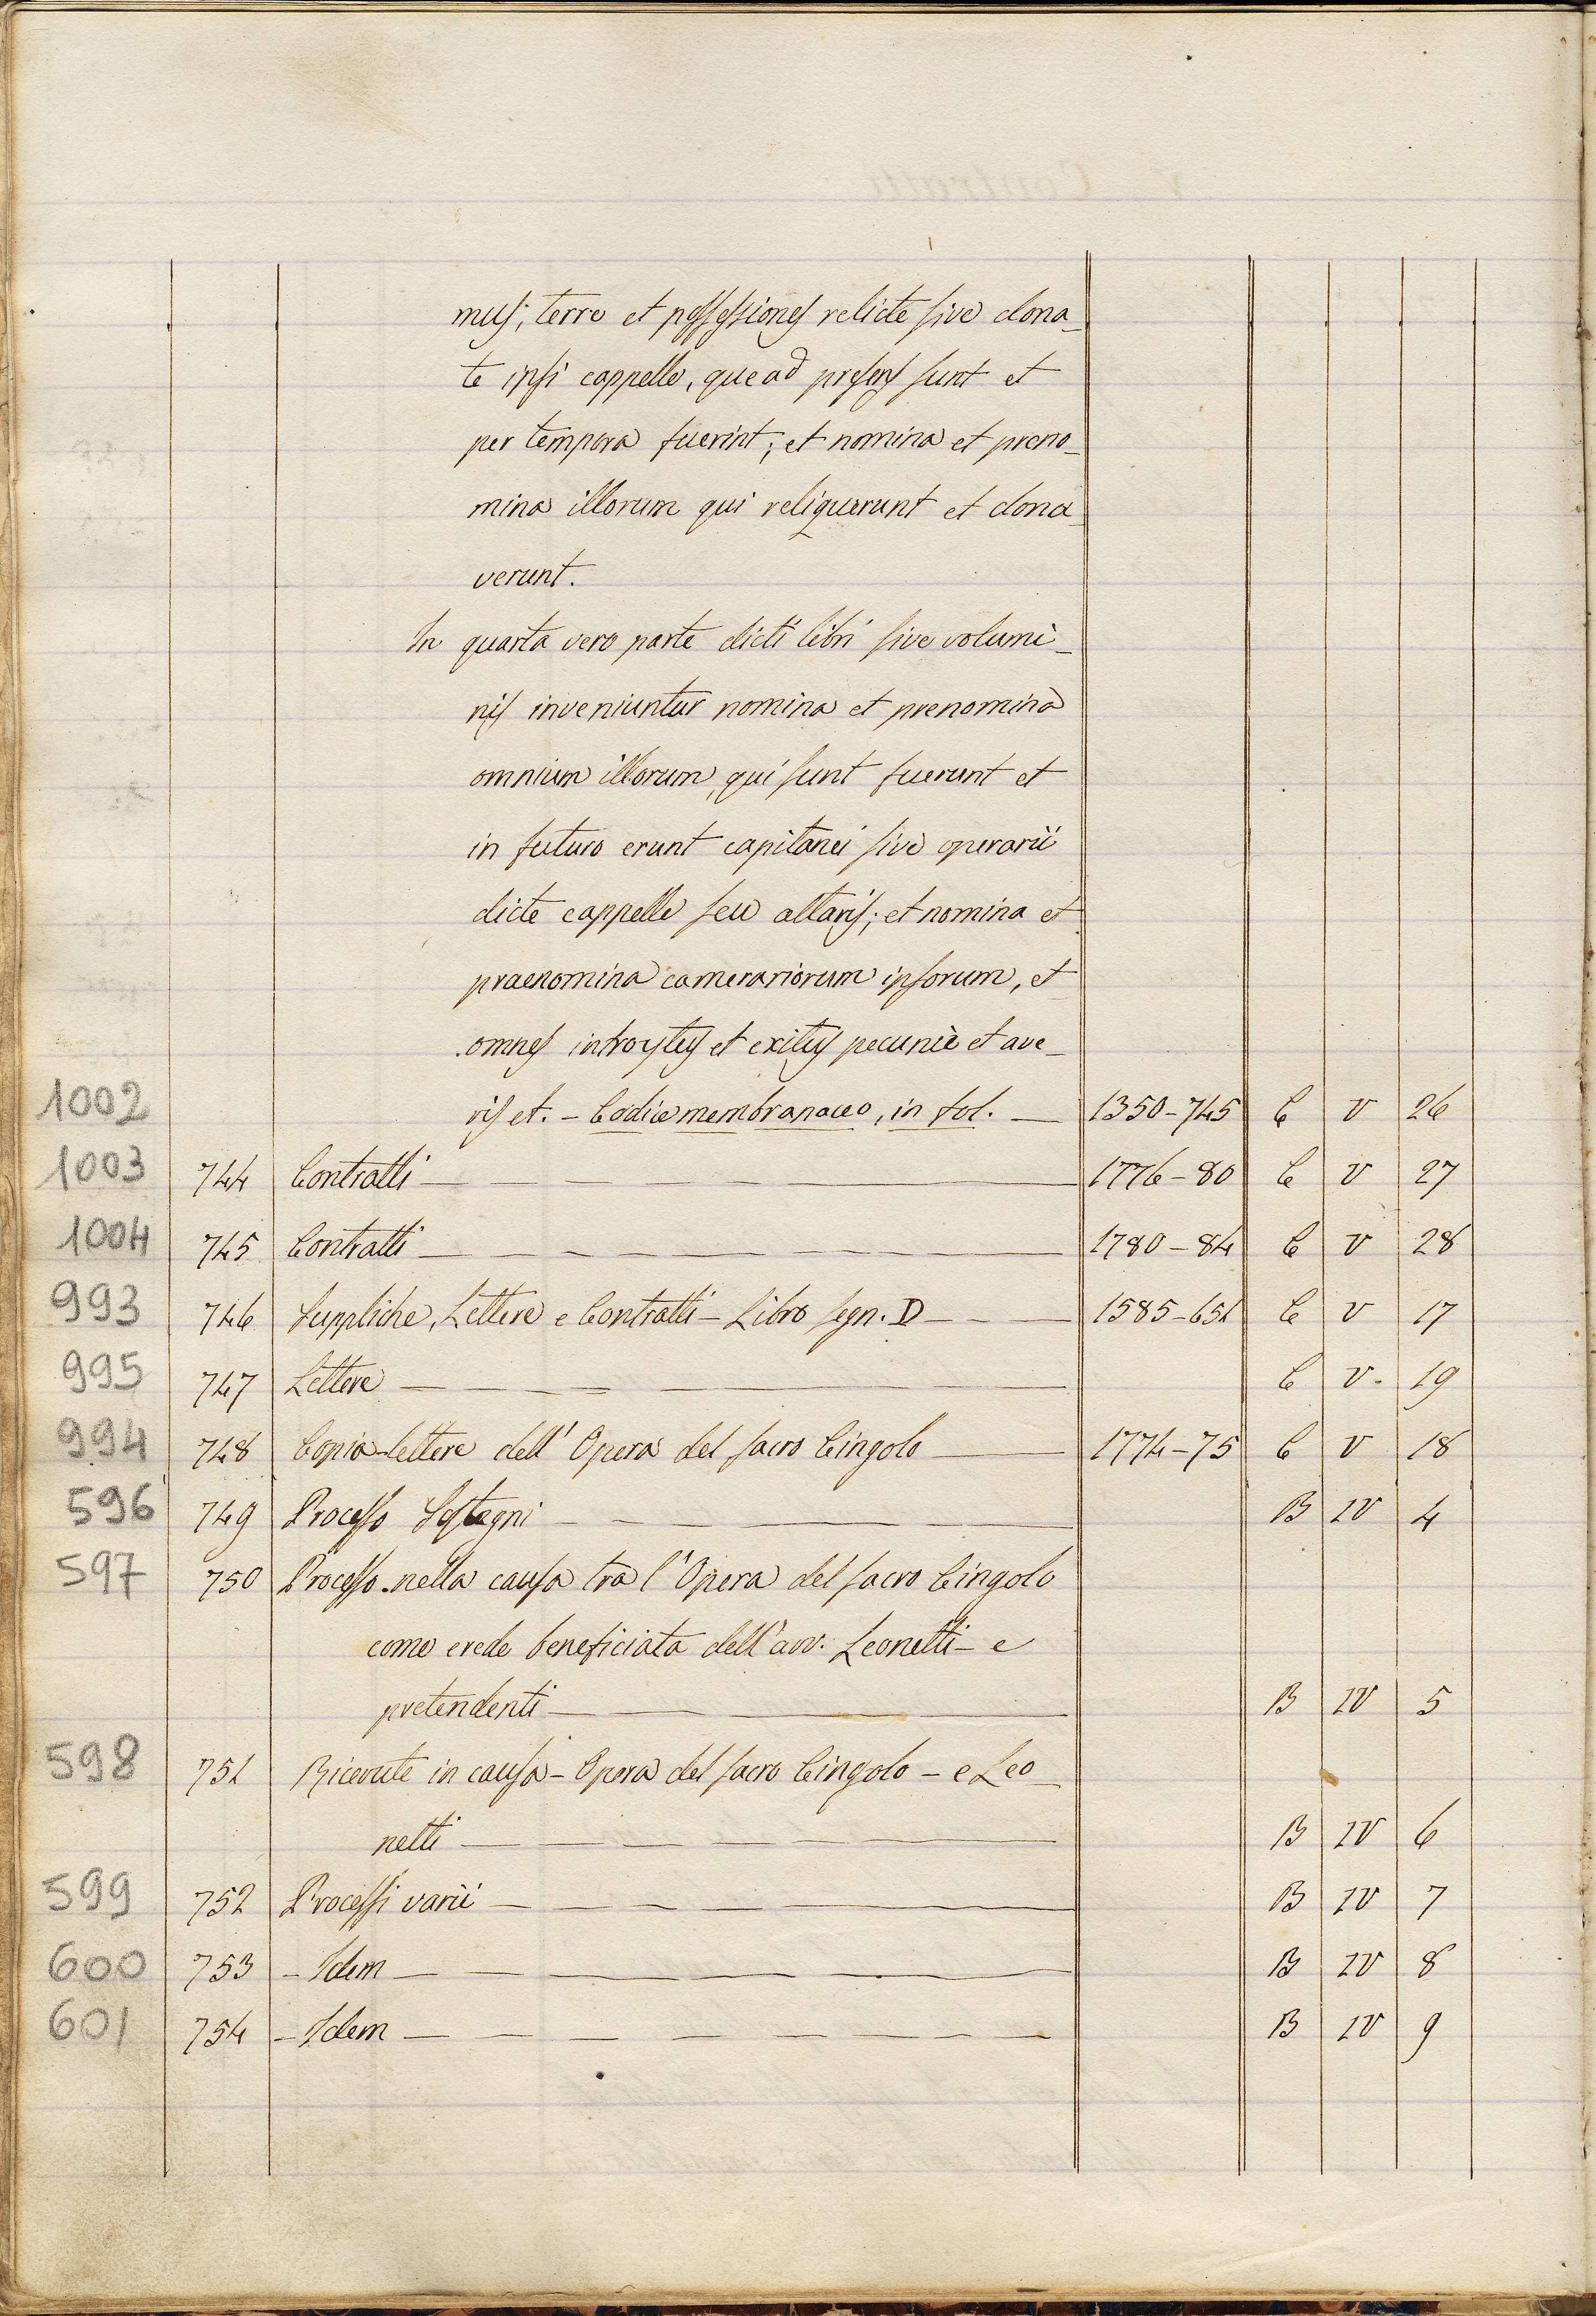 mus; terre et possessiones relicte sive dona_
te ipsi cappelle, que ad presens sunt et
per tempora fuerint; et nomina et preno_
mina illorum qui reliquerunt et dona_
verunt.
In quarta vero parte dicti libri sive volumi_
nis inveniuntur nomina et prenomina
omnium illorum, qui sunt fuerunt et
in futuro erunt capitanei sive operarii
dicte cappelle seu altaris; et nomina et
praenomina camerariorum ipsorum, et
omnes introytus et exitus pecunie et ave_
1002 ris et. - Codice membranaceo, in fol. — 1350-745 C V 26
1003 744 Contratti — 1776-80 C V 27
1004 745 Contratti — 1780-84 C V 28
993 746 Suppliche, Lettere e Contratti - Libro segn. D — 1585-651 C V 17
995 747 Lettere — C V. 19
994 748 Copia-lettere dell' Opera del sacro Cingolo — 1774-75 C V 18
596 749 Processo Sostegni — B IV 4
597 750 Processo nella causa tra l'Opera del sacro Cingolo
come erede beneficiata dell'avv. Leonetti - e
pretendenti — B IV 5
598 751 Ricevute in causa - Opera del sacro Cingolo - e Leo_
netti — B IV 6
599 752 Processi varii — B IV 7
600 753 - Idem — B IV 8
601 754 - Idem — B IV 9